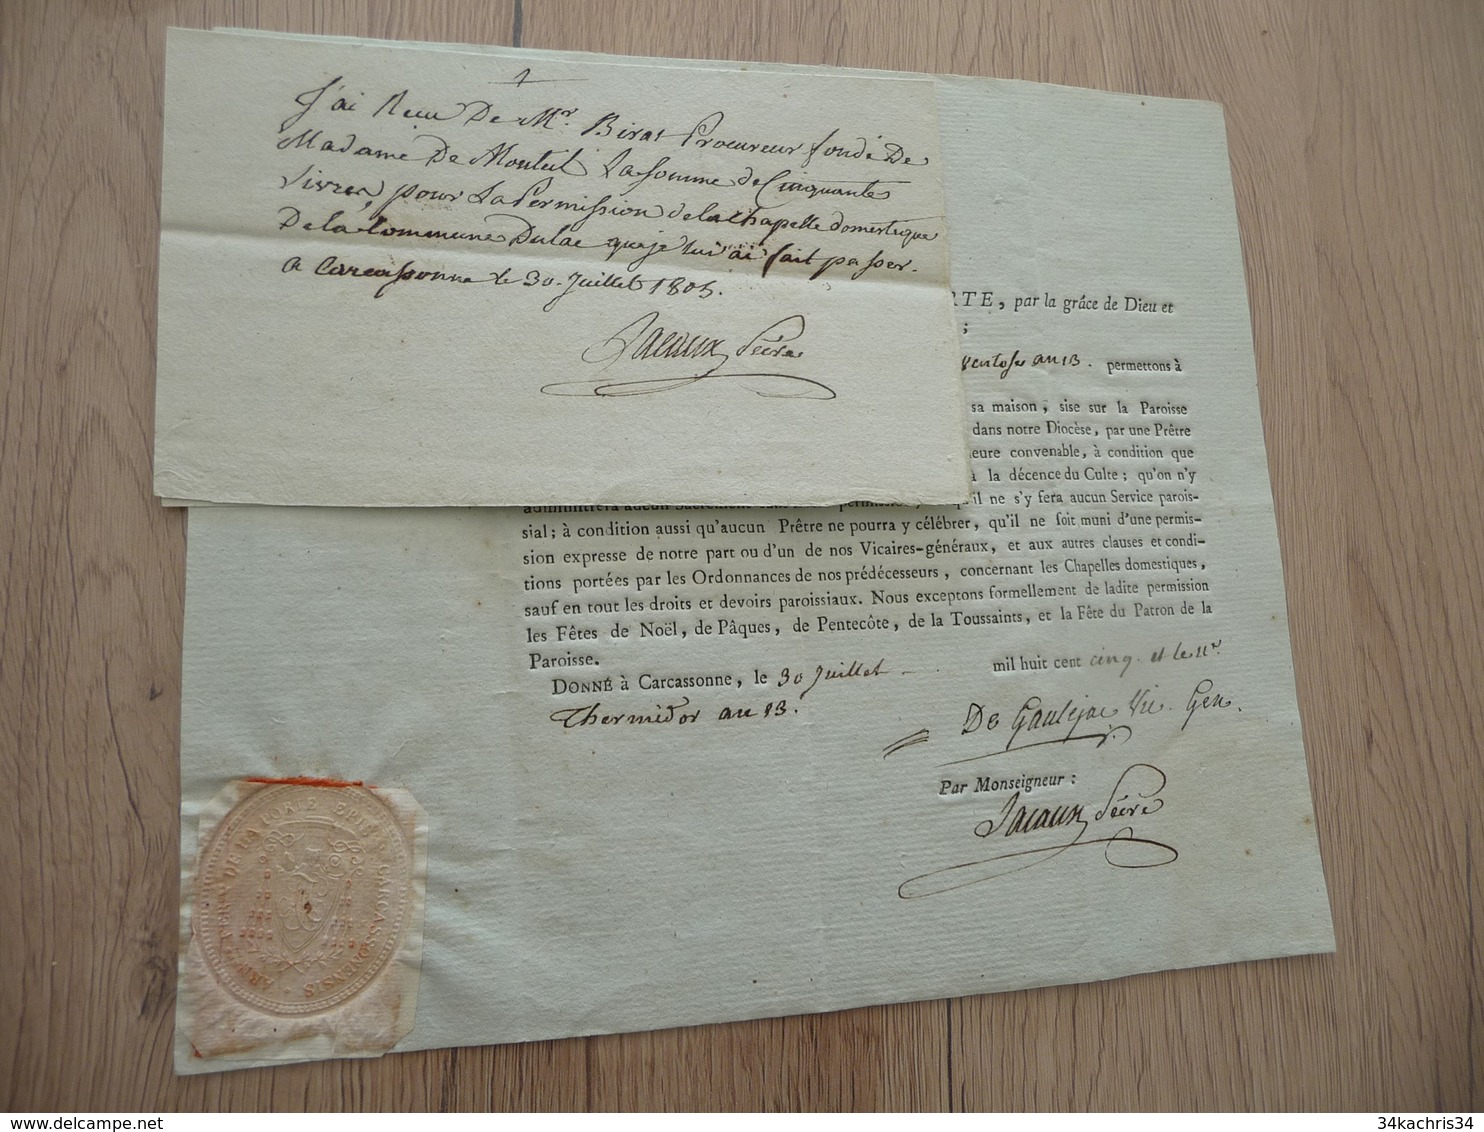 J'ai Recu De Mr. Birat Procureur fondé De
Madame De Monteil La Somme de Cinquante
Livres, pour La Permission de la chapelle domestique
De la Commune Dulac que je lui ai fait passer.
a Carcassonne le 30. Juillet 1805.
Jacaux Sécre
RTE, par la grâce de Dieu et
;
Ventose an 13. permettons à
sa maison, sise sur la Paroisse
dans notre Diocèse, par une Prêtre
eure convenable, à condition que
à la décence du Culte; qu'on n'y
administrera aucun Sacrement
il ne s'y fera aucun Service parois-
sial; à condition aussi qu'aucun Prêtre ne pourra y célébrer, qu'il ne soit muni d'une permis-
sion expresse de notre part ou d'un de nos Vicaires-généraux, et aux autres clauses et condi-
tions portées par les Ordonnances de nos prédécesseurs, concernant les Chapelles domestiques,
sauf en tout les droits et devoirs paroissiaux. Nous exceptons formellement de ladite permission
les Fêtes de Noël, de Pâques, de Pentecôte, de la Toussaints, et la Fête du Patron de la
Paroisse.
DONNÉ à Carcassonne, le 30 Juillet mil huit cent cinq. et le 11r.
Thermidor an 13.
De Gaulejac Vic. Gen.
Par Monseigneur :
Jacaux Sécre
DE LA PORTE EPIS CARCASSONENSIS
34kachris34